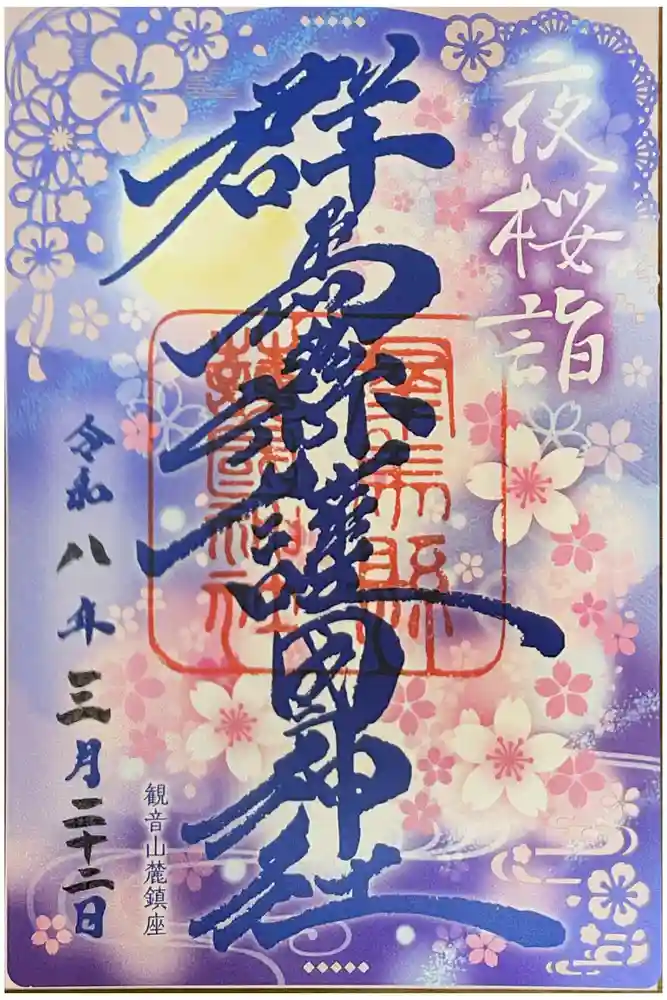 夜桜詣
群馬縣護國神社
群馬縣
護國神社
観音山麓鎮座
令和八年三月二十二日